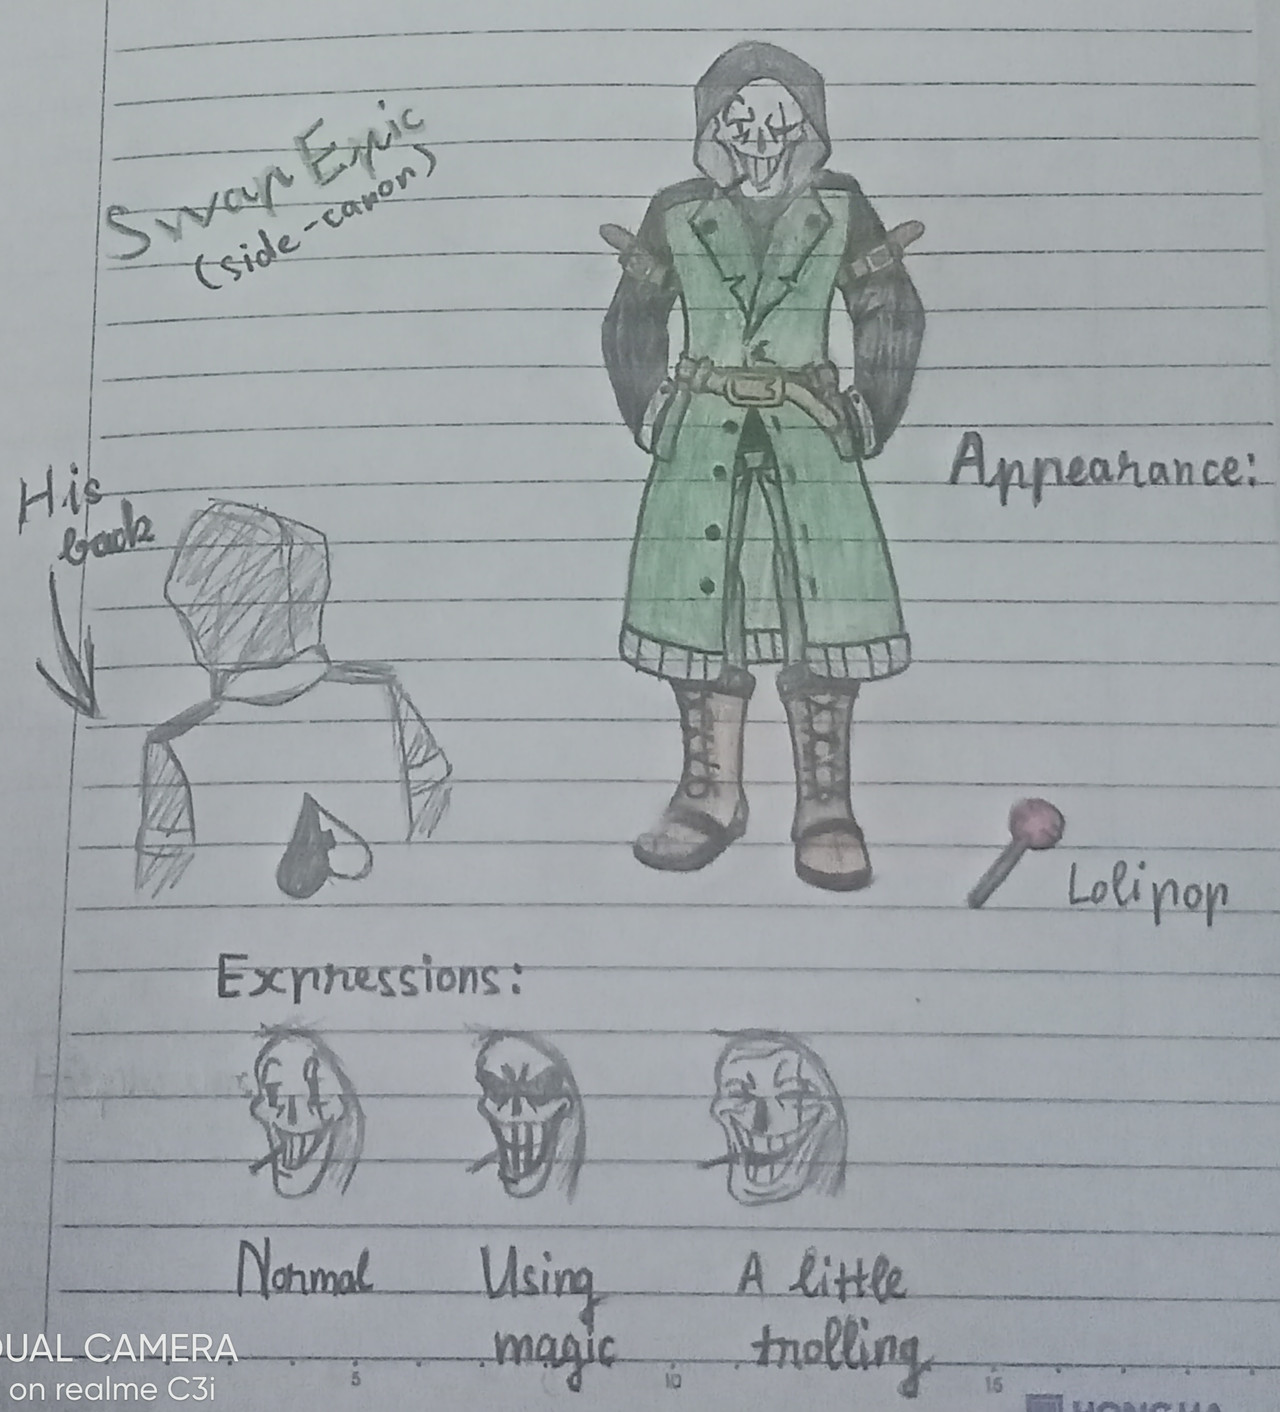 Swap Epic
(side-canon)
His
back
Appearance:
Lolipop
Expressions:
Normal
Using
magic
A little
trolling
DUAL CAMERA
on realme C3i
5
10
15